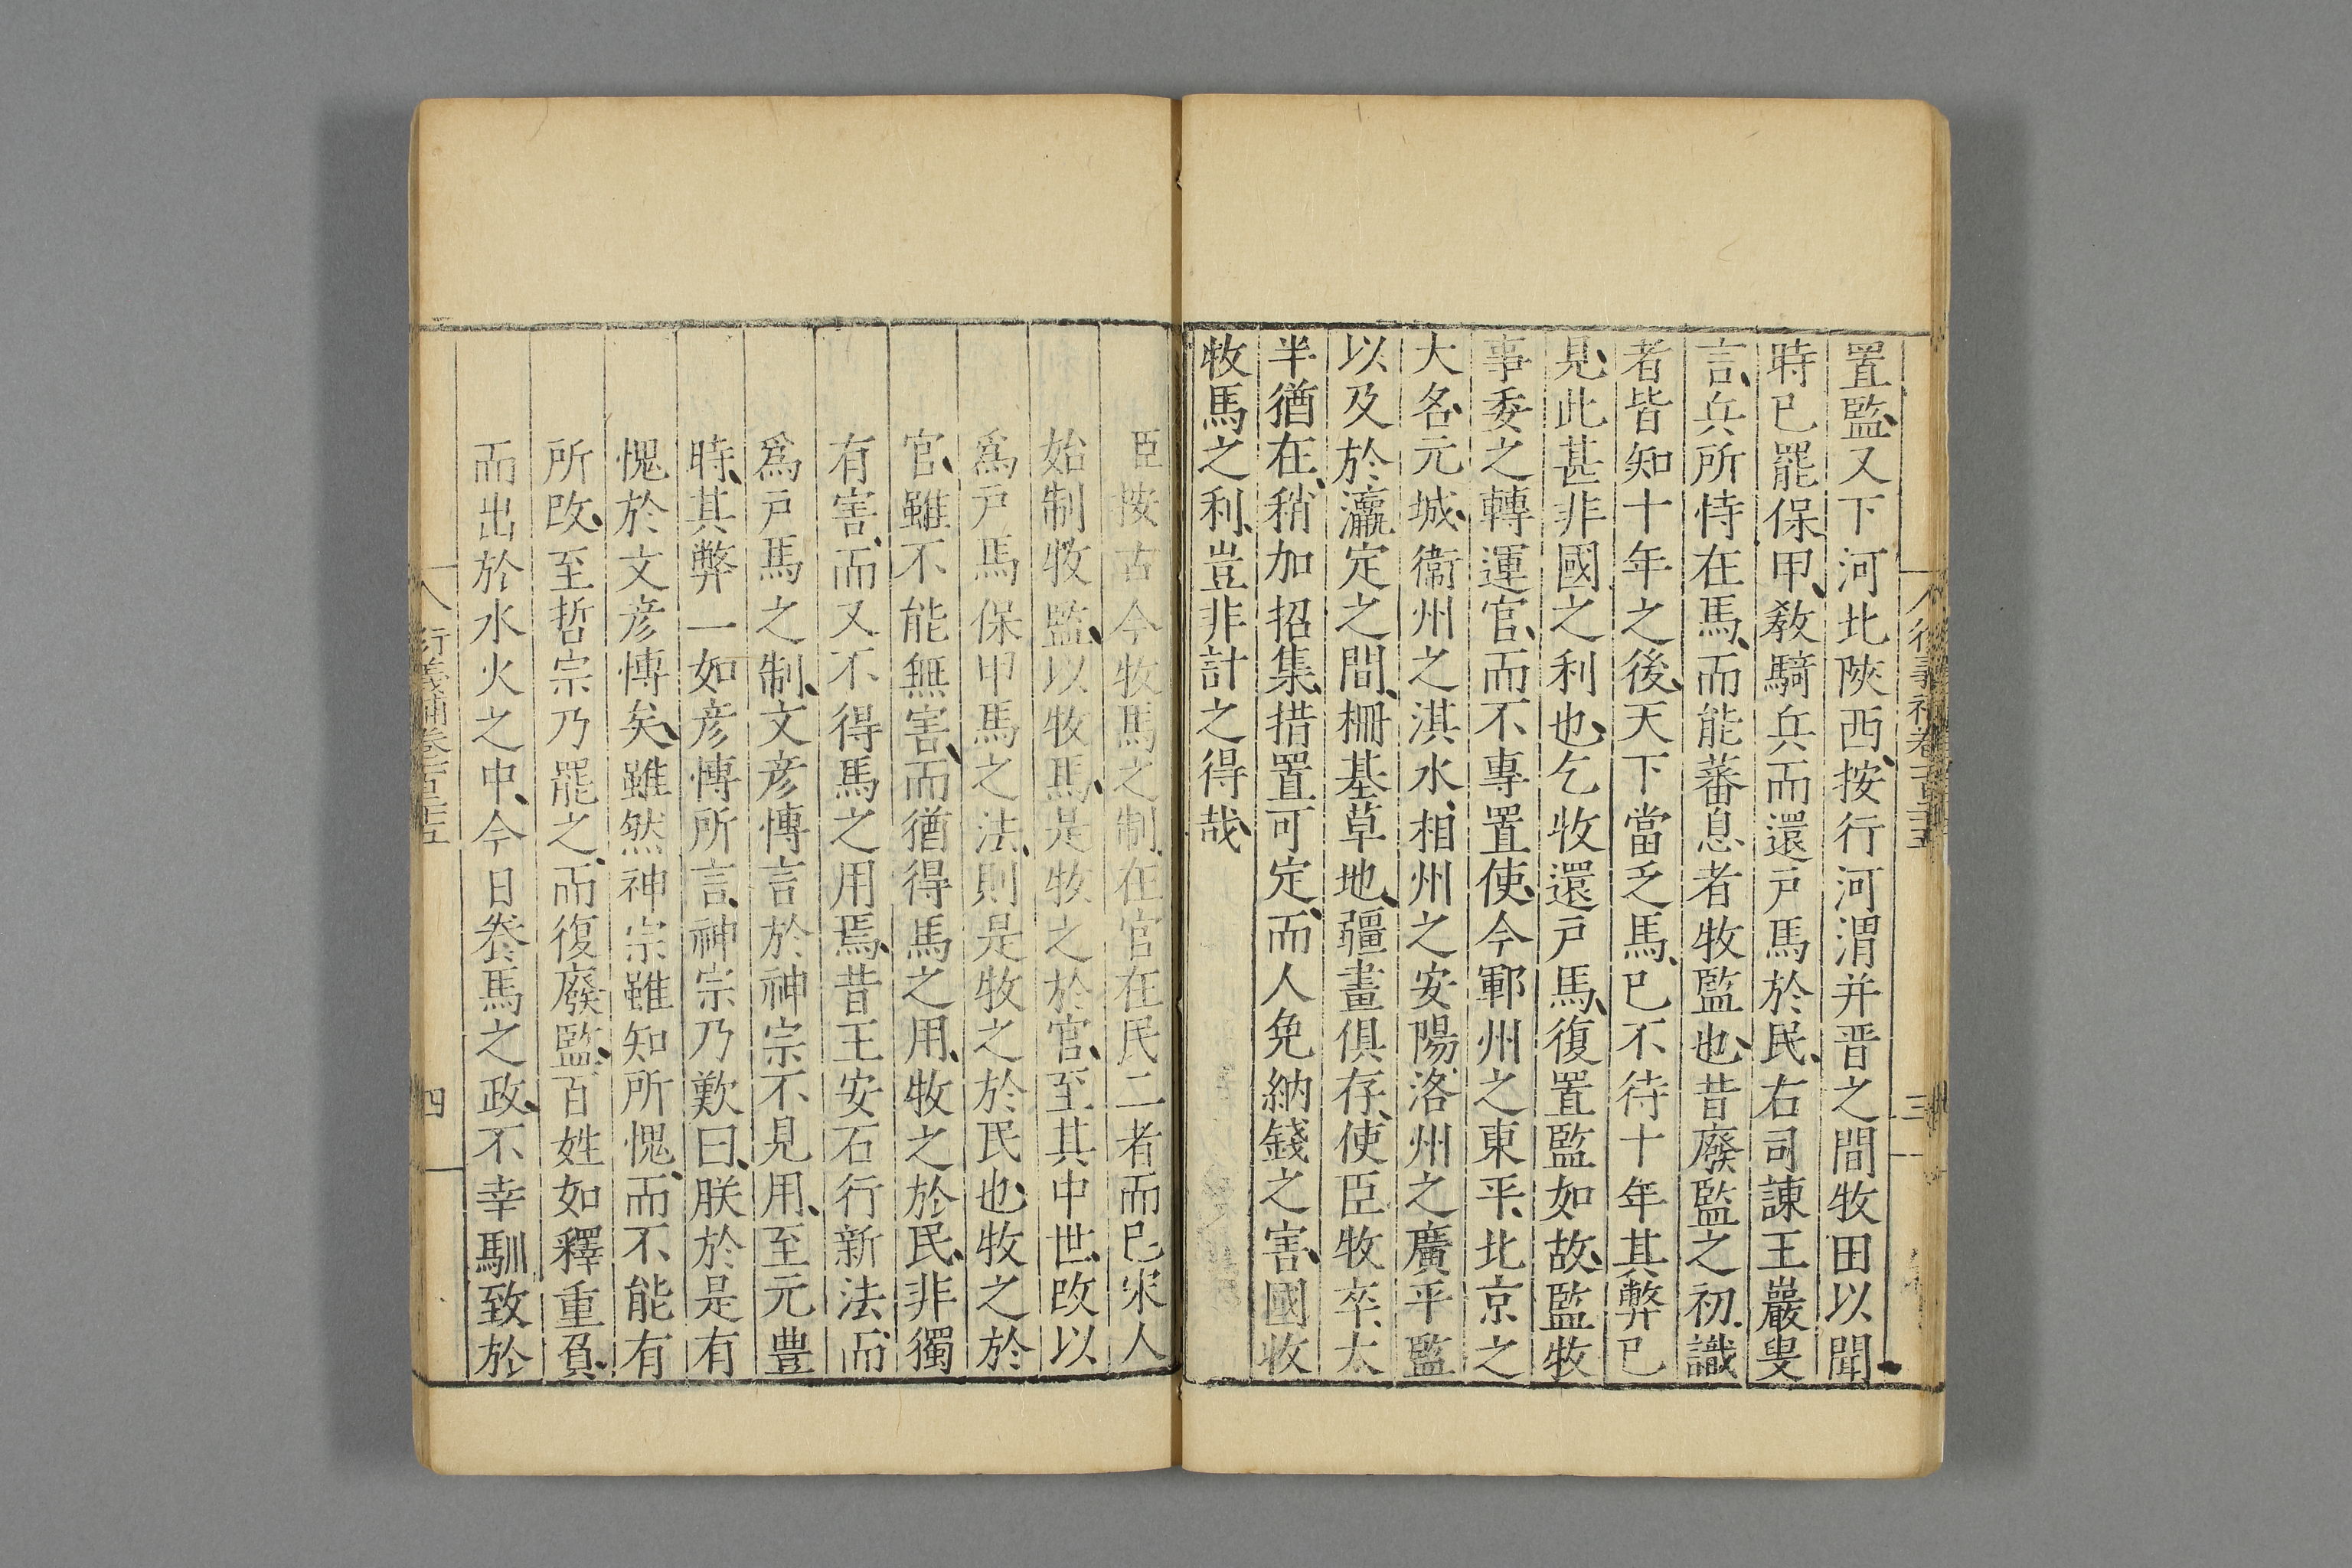 置監、又下河北陝西、按行河渭并晋之間牧田以聞、
時已罷保甲、敎騎兵而還戸馬於民、右司諫王巖叟
言、兵所恃在馬、而能蕃息者牧監也、昔廢監之初、識
者皆知十年之後、天下當乏馬、已不待十年其弊已
見、此甚非國之利也、乞收還戸馬、復置監如故、監牧
事委之轉運官、而不專置使、今鄆州之東平、北京之
大名、元城、衛州之淇水、相州之安陽、洺州之廣平監
以及於瀛定之間、柵基草地、疆畫俱存、使臣牧卒、太
半猶在、稍加招集、措置可定、而人免納錢之害、國收
牧馬之利、豈非計之得哉、
臣按古今牧馬之制、在官在民二者而已、宋人
始制牧監、以牧馬、是牧之於官、至其中世、改以
爲戸馬保甲馬之法、則是牧之於民也、牧之於
官、雖不能無害、而猶得馬之用、牧之於民、非獨
有害、而又不得馬之用焉、昔王安石行新法、而
爲戸馬之制、文彦博言於神宗不見用、至元豊
時、其弊一如彦博所言、神宗乃歎曰、朕於是有
愧於文彦博矣、雖然神宗雖知所愧、而不能有
所改、至哲宗乃罷之、而復廢監、百姓如釋重負、
而出於水火之中、今日養馬之政、不幸馴致於
衍義補卷一百二十五
四
三